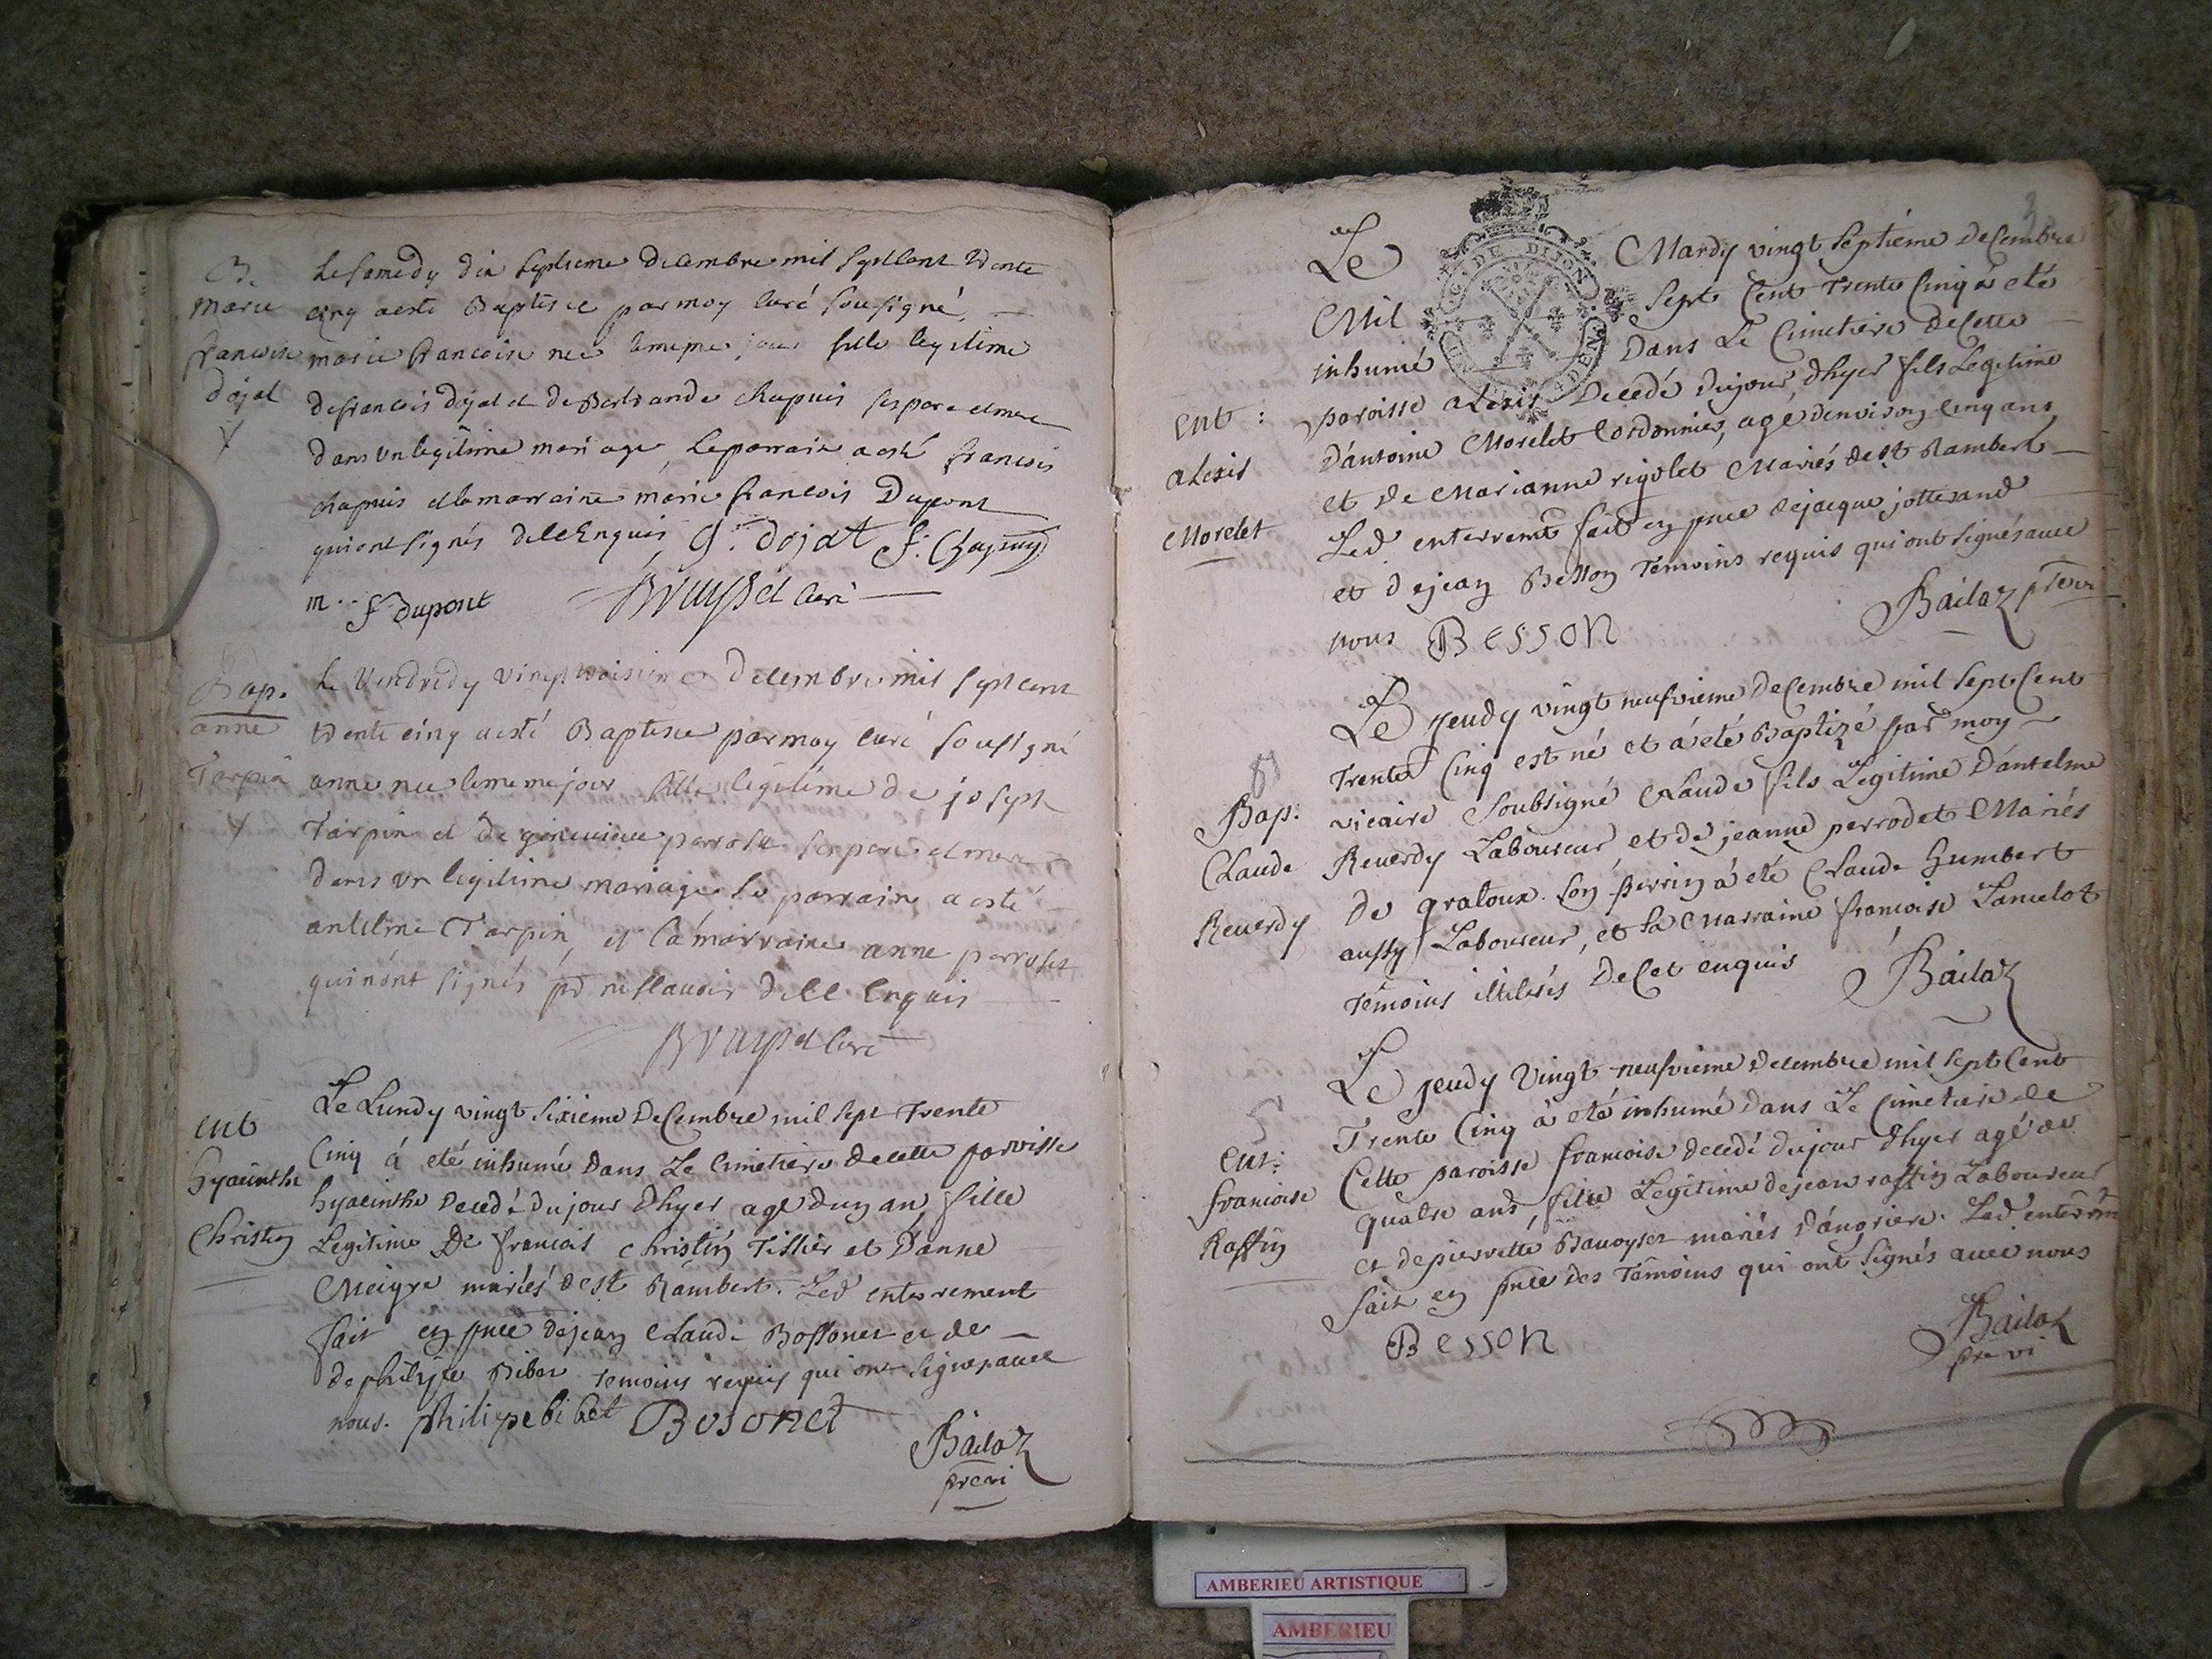 B.
Marie
francoise
dojat
Le samedy dix septieme decembre mil septcent trente
cinq a esté Baptisée par moy curé sousigné,
marie francoise née lememe jour fille legitime
de francois dojat et de Bertrande chapuis ses pere et mere
dans un legitime mariage, Le parrain a esté francois
chapuis et la marraine marie francois Dupont
qui ont signés de ce Enquis G. dojat f. Chapuy
m. f dupont Bruyset curé
Bap.
anne
Tarpin
Le Vendredy vingt troisieme decembre mil sept cent
trente cinq a esté Baptisée par moy curé sousigné
anne née lememe jour fille legitime de joseph
Tarpin et de genevieve perrosset ses pere et mere
dans un legitime mariage le parrain a esté
antelme Tarpin, et la marraine anne perroset
qui n'ont signés pr ne sçavoir de ce Enquis
Bruyset Curé
ent
hyacinthe
Christin
Le Lundy vingt sixieme Decembre mil sept Trente
Cinq á eté inhumé Dans Le Cimetiere de cette parroisse
hyacinthe decedé du jour d'hyer agé d'un an, fille
Legitime De francois christin Tissier et D'anne
Meigre mariés de st Rambert. Led enterrement
fait en pnce de jean claude Bossonet et de
de philipe Bibet temoins requis qui ont signés avec
nous. philipe bibet Bosonet
Bailat
pre vi
Le Mardy vingt septiéme decembre
Mil sept Cent Trente Cinq á eté
inhumé Dans Le Cimetiere de Cette
ent :
alexis
Morelet
paroisse alexis Decedé du jour d'hyer fils Legitime
D'antoine Morelet Cordonnier, agé d'environ cinq ans
et de Marianne rigolet Mariés de st Rambert
Led enterremt fait en pnce de jacque jottesand
et de jean Besson Temoins requis qui ont signés avec
nous Besson Bailat pre vi
Bap:
Claude
Reverdy
Le jeudy vingt neufvieme decembre mil sept Cent
Trente Cinq est né et á été Baptizé par moy
vicaire soubsigné Claude fils Legitime D'antelme
Reverdy Laboureur et de jeanne perrodet Mariés
de gratoux. son parrin á eté Claude humbert
aussy Laboureur, et sa Marraine francoise Lancelot
Temoins illiterés de Cet enquis Bailat
ent:
francoise
Raffin
Le jeudy Vingt neufvieme decembre mil sept Cent
Trente Cinq á eté inhumé dans Le Cimetiere de
Cette paroisse francoise decedé du jour d'hyer agé de
quatre ans, fille Legitime de jean raffin Laboureur
et de pierrette Bavoyset mariés D'angriere. Led enterremt
fait en pnce des Temoins qui ont signés avec nous
Besson Bailat
pre vi
AMBERIEU ARTISTIQUE
AMBERIEU